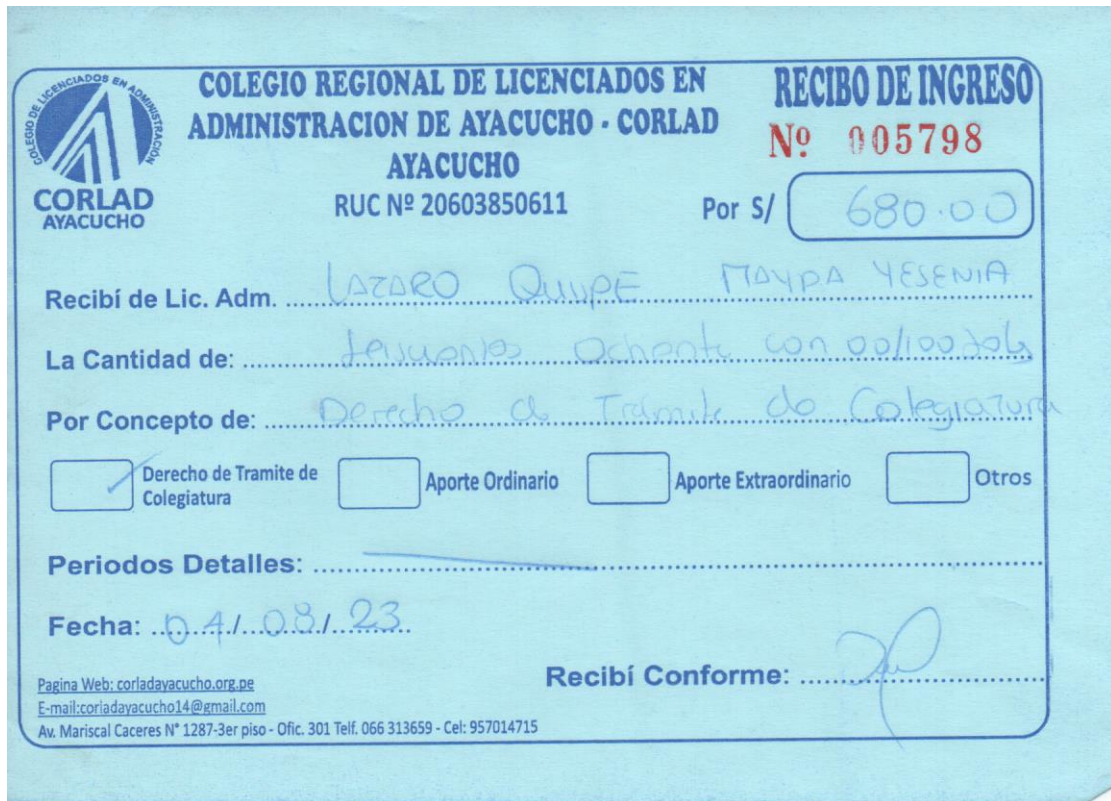 COLEGIO DE LICENCIADOS EN ADMINISTRACIÓN
CORLAD
AYACUCHO
COLEGIO REGIONAL DE LICENCIADOS EN
ADMINISTRACION DE AYACUCHO - CORLAD
AYACUCHO
RUC Nº 20603850611
RECIBO DE INGRESO
Nº 005798
Por S/ 680.00
Recibí de Lic. Adm. LAZARO QUISPE MAYDA YESENIA
La Cantidad de: seiscientos Ochenta con 00/100 soles
Por Concepto de: Derecho de Trámite de Colegiatura
Derecho de Tramite de Colegiatura Aporte Ordinario Aporte Extraordinario Otros
Periodos Detalles:
Fecha: 04/08/23
Recibí Conforme:
Pagina Web: corladayacucho.org.pe
E-mail:corladayacucho14@gmail.com
Av. Mariscal Caceres N° 1287-3er piso - Ofic. 301 Telf. 066 313659 - Cel: 957014715